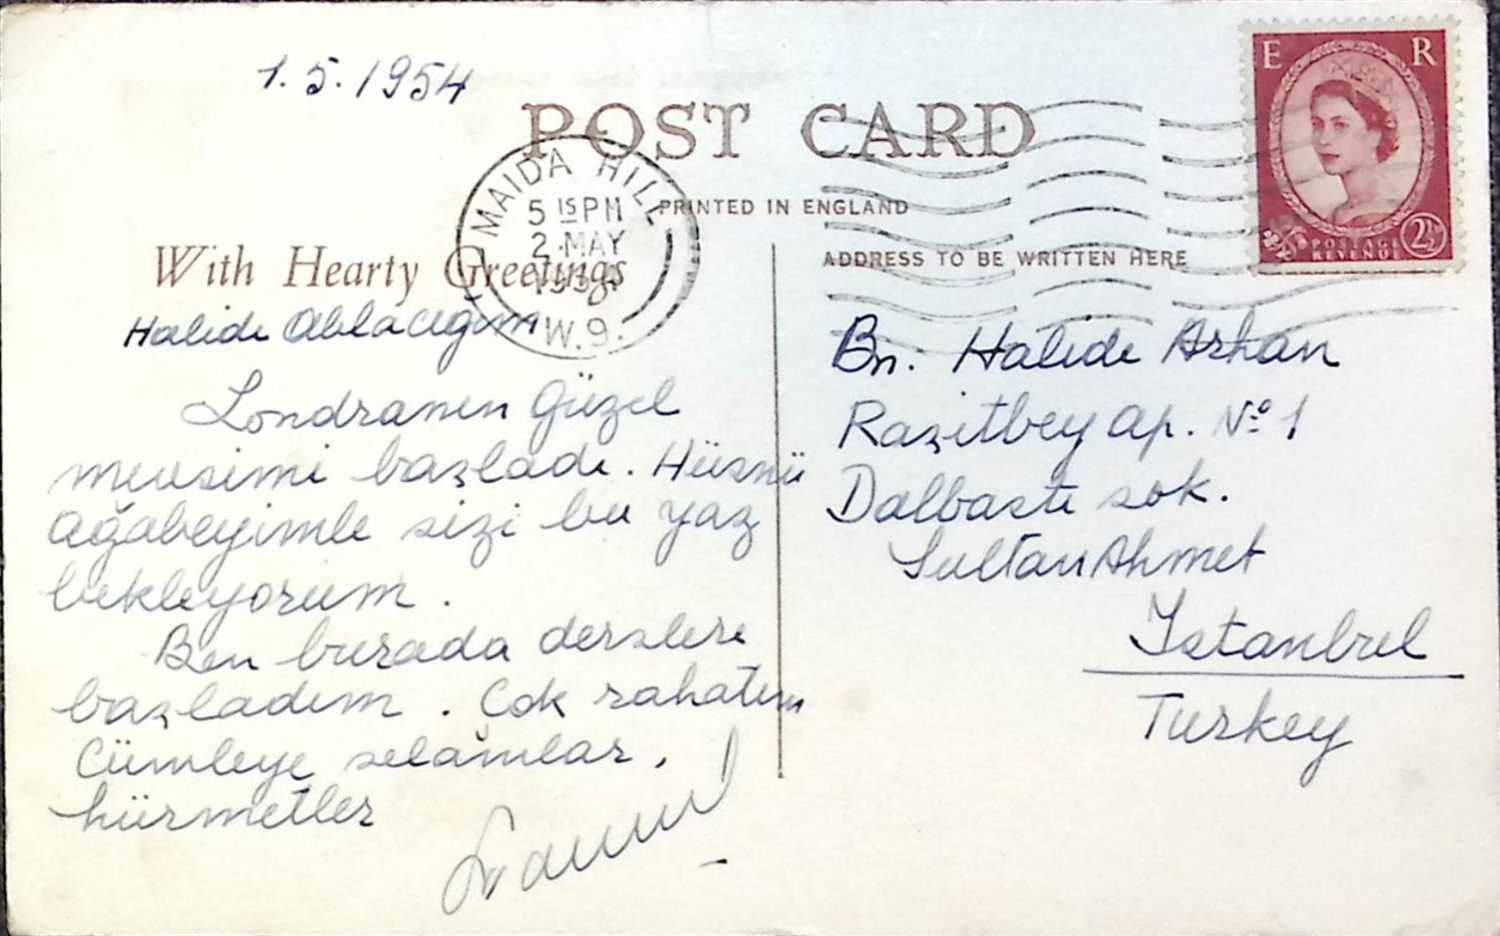 1.5.1954
POST CARD
PRINTED IN ENGLAND
MAIDA HILL
5 15 PM
2 MAY
1954
W.9.
E R
POSTAGE
REVENUE
2½
With Hearty Greetings
ADDRESS TO BE WRITTEN HERE
Halide Ablacığım
Londranın Güzel
mevsimi başladı. Hüsnü
Ağabeyimle sizi bu yaz
bekleyorum.
Ben burada derslere
başladım. Çok rahatım
Cümleye selâmlar,
hürmetler
Bn. Halide Arhan
Raşitbey ap. No 1
Dalbastı sok.
SultanAhmet
Istanbul
Turkey